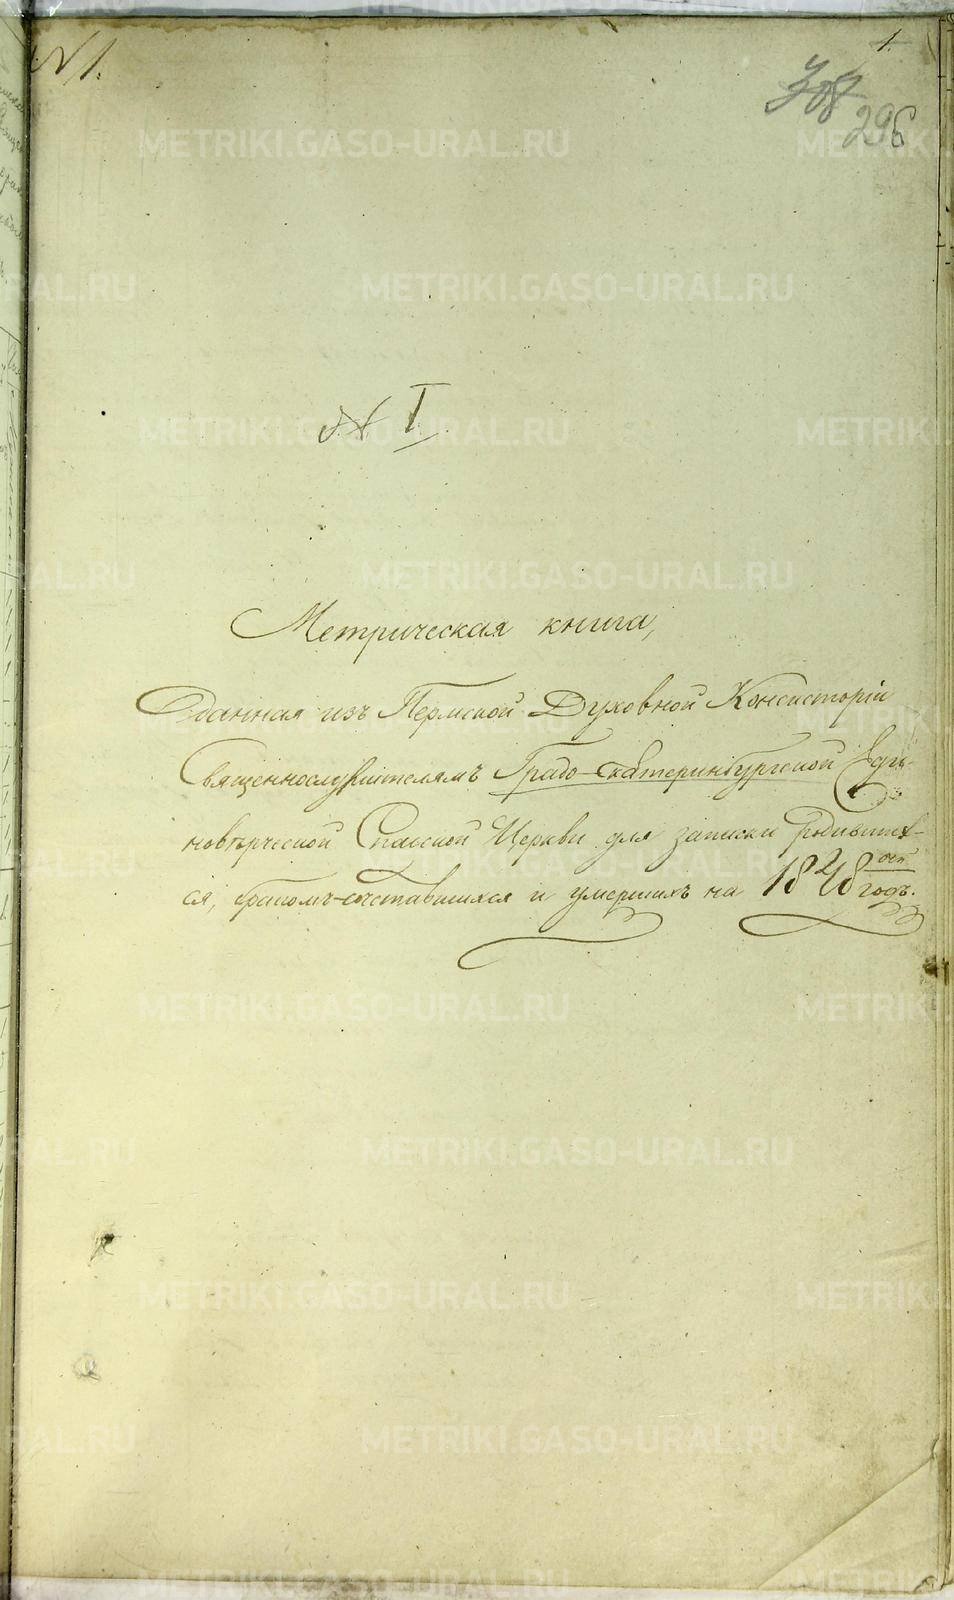 № 1.
1.
308
296
№ I
Метрическая книга,
Данная изъ Пермской Духовной Консисторіи
Священнослужителямъ Градо-Екатеринбургской Еди-
новѣрческой Спасской Церкви для записки родивших-
ся, бракомъ сочетавшихся и умершихъ на 1828 ой годъ.
METRIKI.GASO-URAL.RU